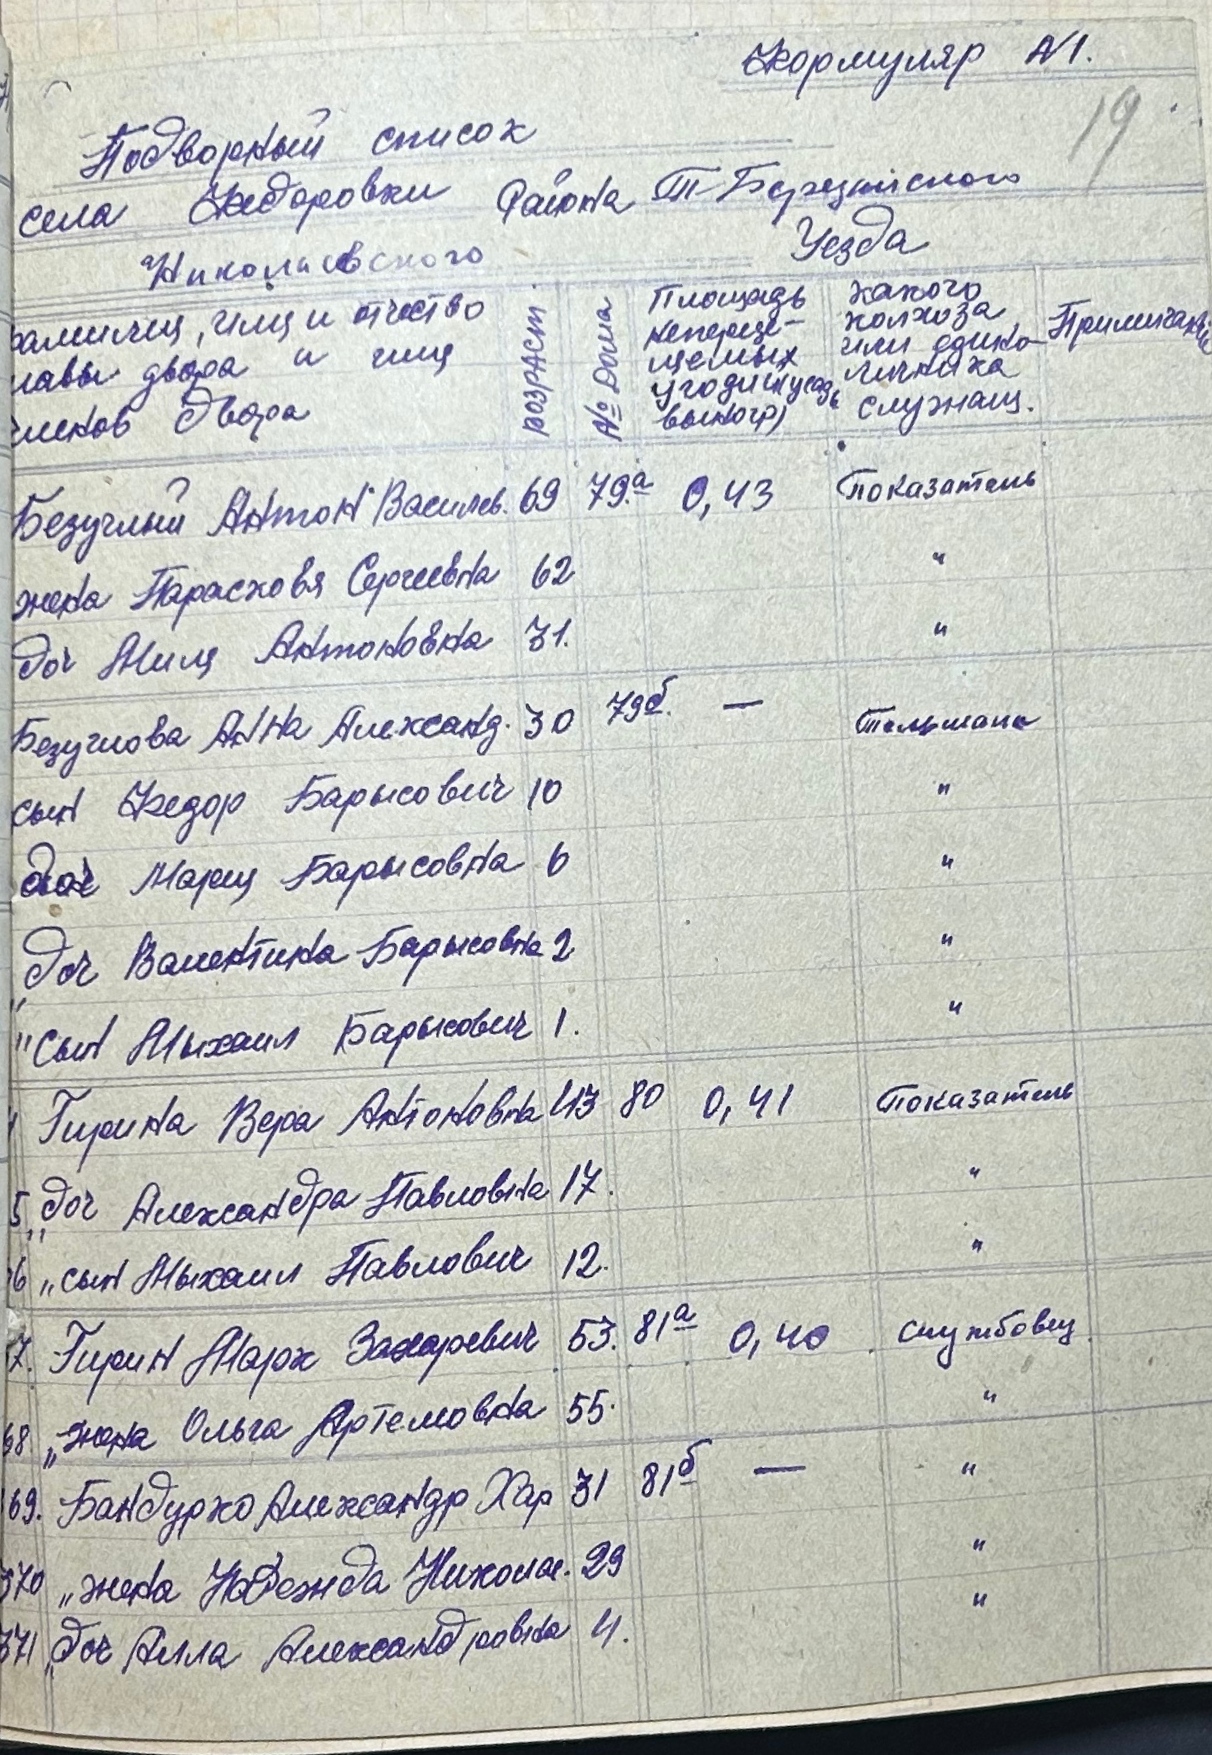 Формуляр №1.
19
Подворный список
села Федоровки района Т-Березанского
Николаевского Уезда
фамилия, имя и отчество главы двора и имя членов двора
розраст
№ Дома
Площадь непереще-щемых угодий (усадь виногр)
какого колхоза или едино-личника служащ.
Примичание
Безуглый Антон Васильев. 69 79а 0,43 Показатель
жена Парасковя Сергеевна 62 "
доч Миля Антоновна 31. "
Безуглова Анна Александ. 30 79б. — Тельмана
сын Федор Барысович 10 "
доч Мария Барысовна 6 "
" доч Валентина Барысовна 2 "
" сын Мыхаил Барысович 1. "
Гирина Вера Антоновна 43 80 0,41 Показатель
5 " доч Александра Павловна 17. "
6 " сын Мыхаил Павлович 12. "
7. Гирин Марк Захаревич 53. 81а 0,40 службовец
68 " жена Ольга Артемовна 55. "
69. Бандурко Александр Хар 31 81б — "
370 " жена Надежда Николае. 29 "
371 " доч Алла Александровна 4. "